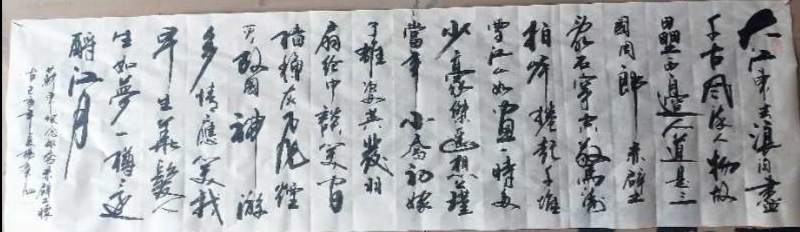 大江東去浪淘盡
千古風流人物故
壘西邊人道是三
國周郎赤壁
亂石穿空驚濤
拍岸捲起千堆
雪江山如畫一時多
少豪傑遙想公瑾
當年小喬初嫁
了雄姿英發羽
扇綸巾談笑間
檣櫓灰飛煙
滅故國神游
多情應笑我
早生華髮人
生如夢一樽還
酹江月